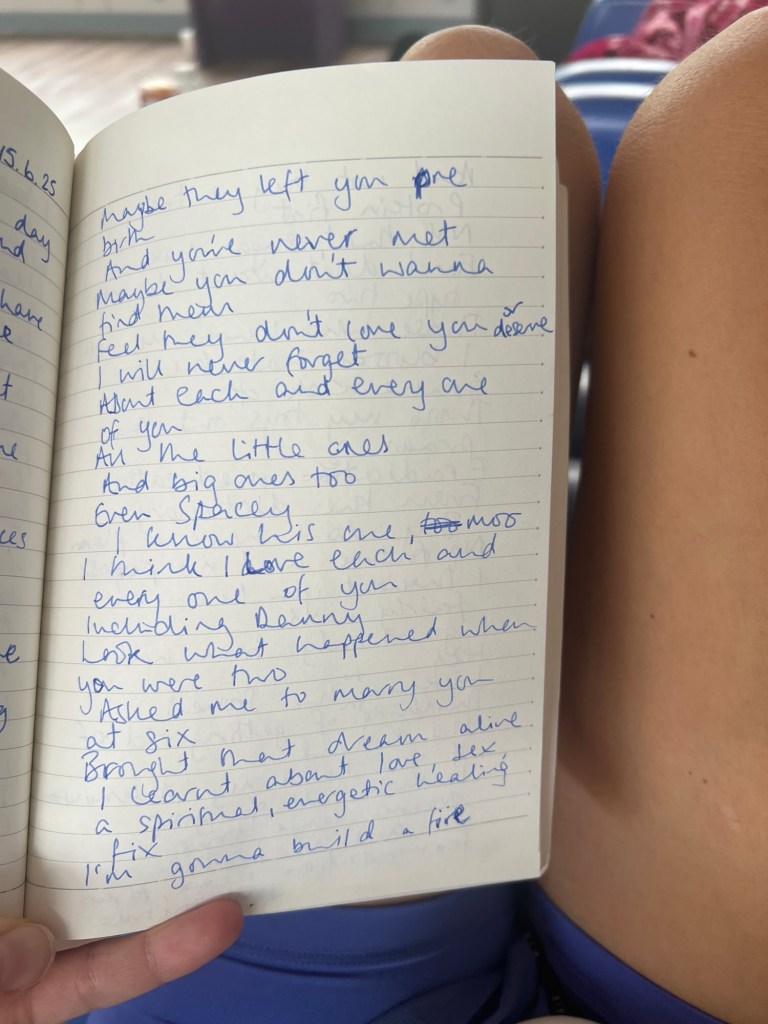 15.6.25
day
nd
have
e
t
ne
ces
e
g
Maybe they left you pre
birth
And you've never met
Maybe you don't wanna
find them
Feel they don't love you or deserve
I will never forget
About each and every one
of you
All the little ones
And big ones too
Even Spacey
I know his one, too moo
I think I love each and
every one of you
Including Danny
Look what happened when
you were two
Asked me to marry you
at six
Brought that dream alive
I learnt about love, sex,
a spiritual, energetic healing
fix
I'm gonna build a fire